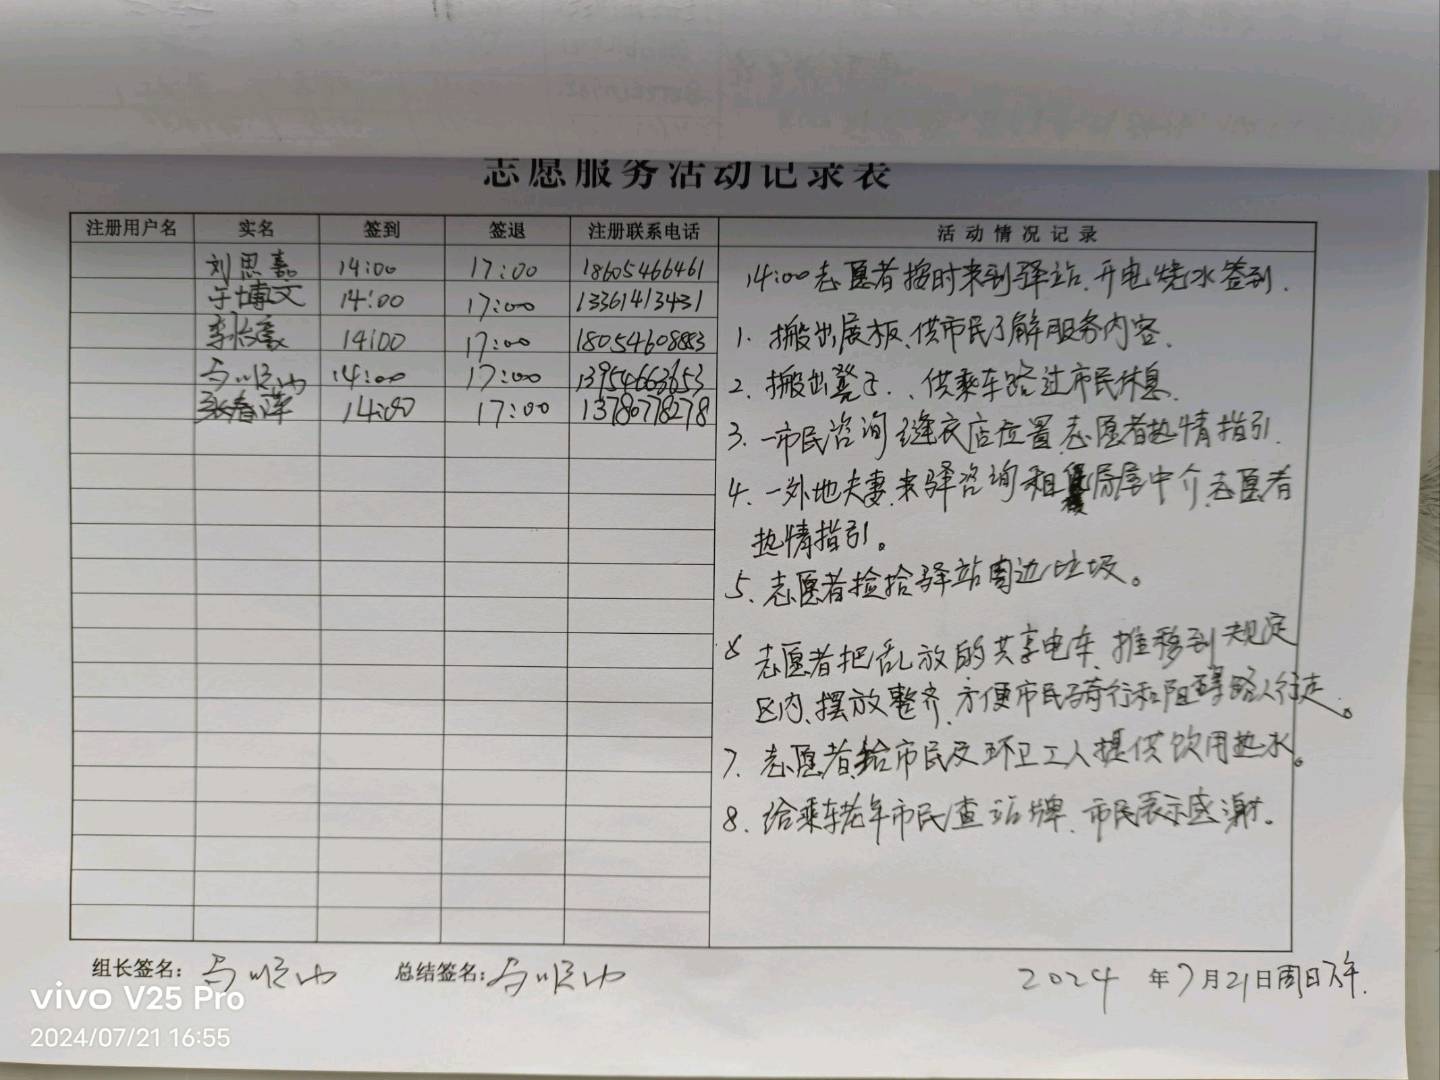 志愿服务活动记录表
注册用户名 实名 签到 签退 注册联系电话 活动情况记录
刘思嘉 14:00 17:00 18605466461
于博文 14:00 17:00 13361413431
李怡豪 14:00 17:00 18054608883
14:00 17:00 13954663653
张春萍 14:00 17:00 13780778278
14:00志愿者按时来到驿站、开电烧水签到.
1. 搬出展板、供市民了解服务内容.
2. 搬出凳子、供乘车路过市民休息.
3. 一市民咨询缝衣店位置,志愿者热情指引.
4. 一外地夫妻来驿咨询租房屋中介,志愿者
热情指引。
5. 志愿者捡拾驿站周边垃圾。
6 志愿者把乱放的共享电车、推移到规定
区内、摆放整齐,方便市民骑行和阻碍路人行走。
7. 志愿者给市民及环卫工人提供饮用热水。
8. 给乘车老年市民查站牌、市民表示感谢。
组长签名: 总结签名: 2024年7月21日周日下午.
vivo V25 Pro
2024/07/21 16:55